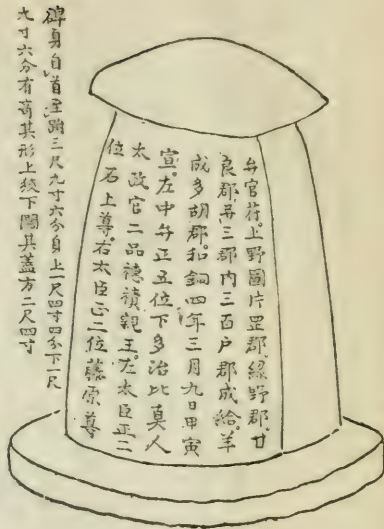 弁官苻。上野國片罡郡。緑野郡。甘
良郡并三郡内三百户郡成給。羊
成多胡郡。和銅四年三月九日甲寅
宣。左中弁正五位下多治比真人
太政官二品穗積親王。左太臣正二
位石上尊。右太臣正二位藤原尊
碑身自首至趺三尺九寸六分身上一尺四寸四分下一尺
九寸六分有奇其形上下闊其蓋方二尺四寸